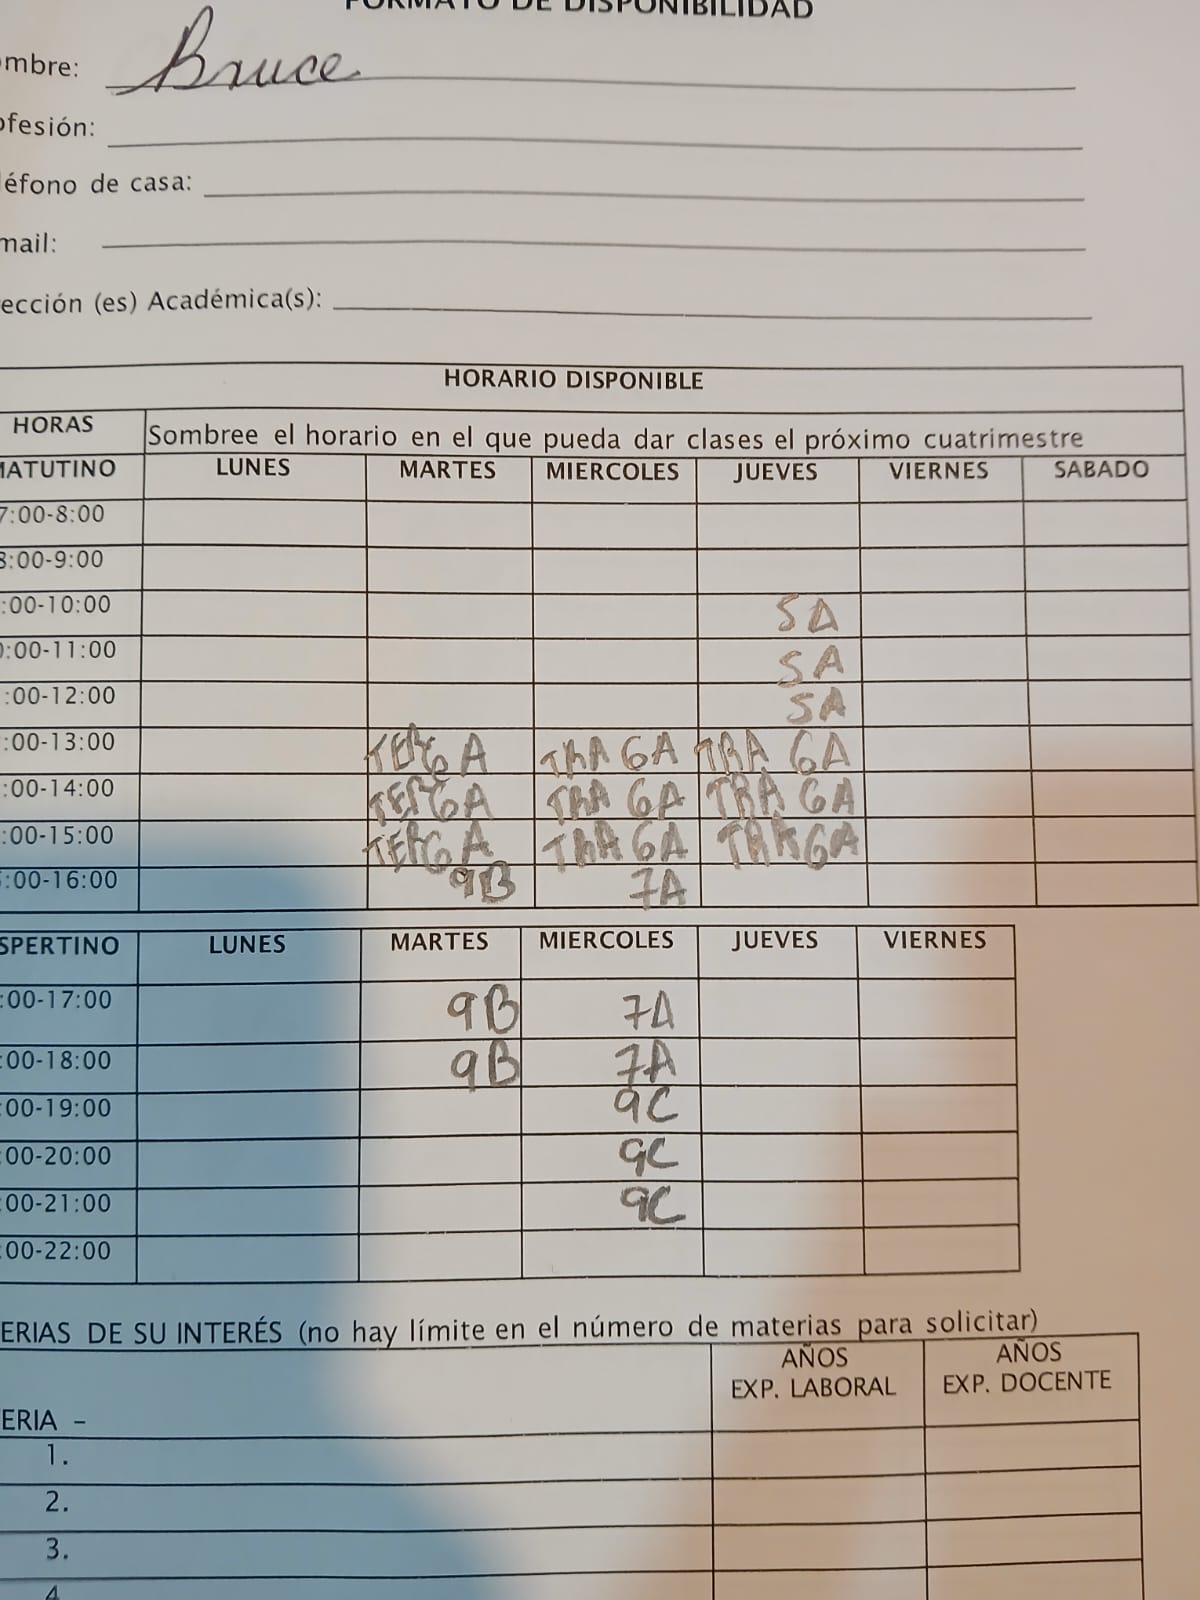 FORMATO DE DISPONIBILIDAD
ombre: Bruce
ofesión:
léfono de casa:
mail:
ección (es) Académica(s):
HORARIO DISPONIBLE
HORAS Sombree el horario en el que pueda dar clases el próximo cuatrimestre
MATUTINO LUNES MARTES MIERCOLES JUEVES VIERNES SABADO
7:00-8:00
8:00-9:00
:00-10:00 5A
0:00-11:00 5A
:00-12:00 5A
:00-13:00 TER6A TRA 6A TRA 6A
:00-14:00 TER6A TRA 6A TRA 6A
:00-15:00 TER6A TRA6A TRA6A
:00-16:00 9B 7A
SPERTINO LUNES MARTES MIERCOLES JUEVES VIERNES
:00-17:00 9B 7A
:00-18:00 9B 7A
:00-19:00 9C
:00-20:00 9C
:00-21:00 9C
:00-22:00
ERIAS DE SU INTERÉS (no hay límite en el número de materias para solicitar)
ERIA – AÑOS EXP. LABORAL AÑOS EXP. DOCENTE
1.
2.
3.
4